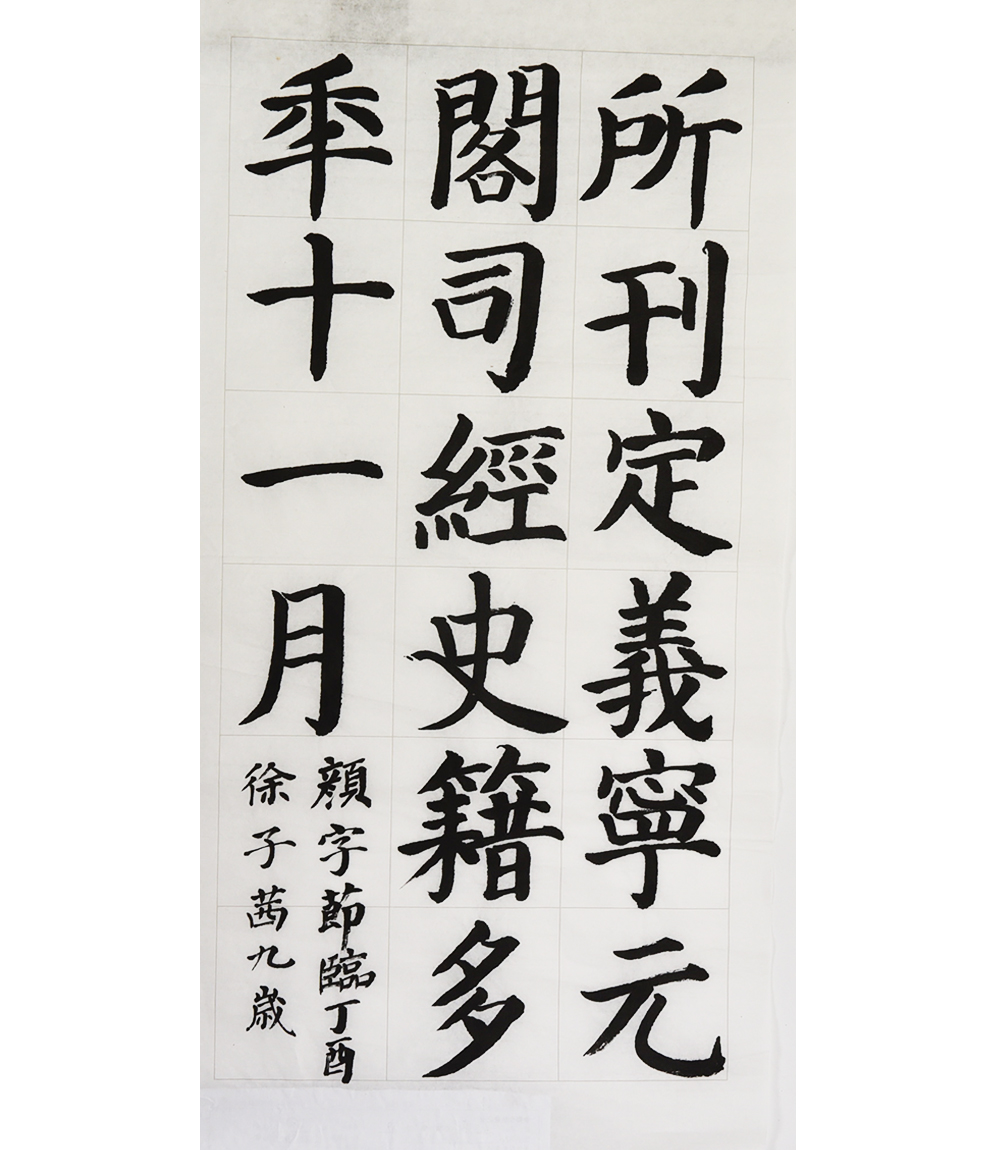 所刊定義寧元
閣司經史籍多
年十一月
顏字節臨丁酉
徐子茜九歲